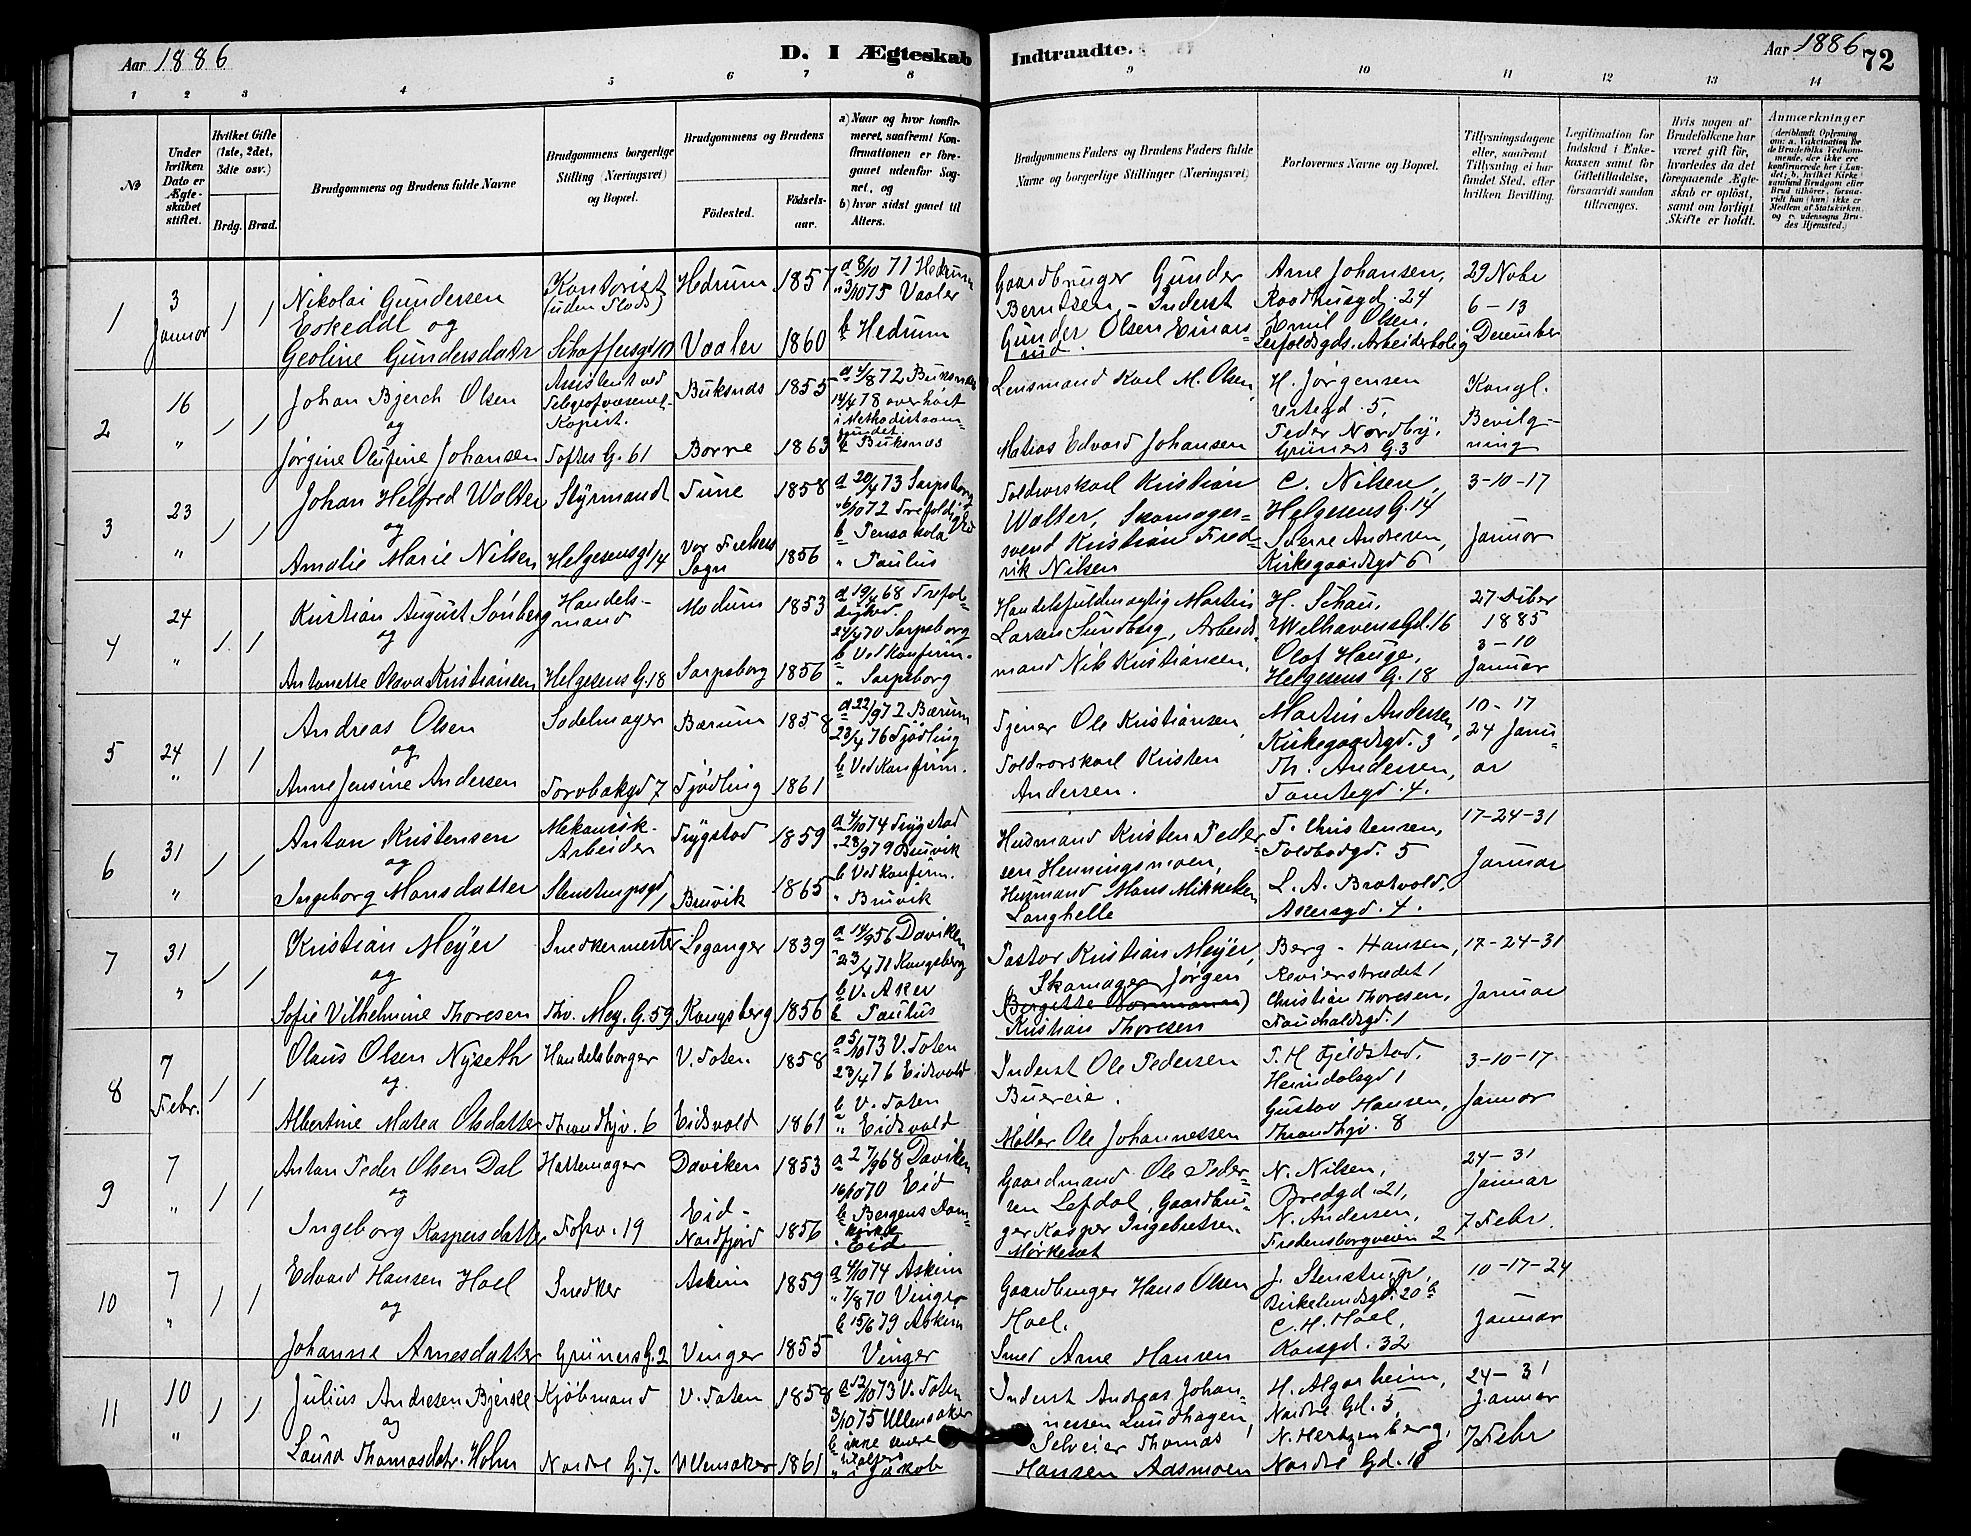 Aar 1886
D. I Ægteskab Indtraadte.
Aar 1886
72
1 2 3 4 5 6 7 8 9 10 11 12 13 14
№
Under hvilken Dato er Ægte-skabet stiftet.
Hvilket Gifte (1ste, 2det, 3die osv.)
Brdg. Brud.
Brudgommens og Brudens fulde Navne
Brudgommens borgerlige Stilling (Næringsvei) og Bopæl.
Brudgommens og Brudens
Fødested.
Fødsels-aar.
a) Naar og hvor konfir-meret, saafremt Kon-firmationen er fore-gaaet udenfor Sog-net, og
b) hvor sidst gaaet til Alters.
Brudgommens Faders og Brudens Faders fulde Navne og borgerlige Stillinger (Næringsvei)
Forlovernes Navne og Bopæl.
Tillysningsdagene eller, saafremt Tillysning ei har fundet Sted, efter hvilken Bevilling.
Legitimation for Indskud i Enke-kassen samt for Giftetilladelse, forsaavidt saadan tiltrænges.
Hvis nogen af Brudefolkene har været gift før, hvorledes da det foregaaende Ægte-skab er opløst, samt om lovligt Skifte er holdt.
Anmærkninger
(deriblandt Oplysning om: a. Vakcination for de Brudefolks Vedkom-mende, der ikke ere konfirmerede her i Lan-det; b. hvilket Kirke-samfund Brudgom eller Brud tilhører, forsaa-vidt han (hun) ikke er Medlem af Statskirken, og c. udensogns Bru-des Hjemsted.)
1
3 Januar
1 1
Nikolai Gundersen
og
Geoline Gundersdatr
Kontorist
(uden Plads)
Hedrum 1857
Vaaler 1860
a 8/10 71 Hedrum
" 3/10 75 Vaaler
b Hedrum
Gaardbruger Gunder
Berntsen, - Inderst
Gunder Olsen
Arne Johansen,
Raadhusgd. 24
Emil Olsen,
Arbeiderbolig
29 Nobr
6 - 13
December
2
16 "
1 1
Johan Bjerch Olsen
og
Jørgine Olufine Johansen
Assistent ved
Kopist.
Toftes G. 61
Buksnæs 1855
Borre 1863
Buksnæs
14/4 78 overhørt
i Methodistsam-
fundet.
b Buksnæs
Lensmand Karl M. Olsen,
Matias Edvard Johansen
H. Jørgensen
Peder Nordby,
Grüners G. 3
Kongl.
Bevilg-
ning
3
23 "
1 1
Johan Helfred Walter
og
Amalie Marie Nilsen
Styrmand
Helgesensgd 14
Tune 1858
Vor Frelsers
Sogn 1856
a 20/4 73 Sarpsborg
" 6/10 72 Trefoldighed
b Pensakola
" Paulus
Toldrorskarl Kristian
Walter, Skomager=
svend Kristian Fred=
rik Nilsen
C. Nilsen,
Helgesens G. 14
Sverre Andresen,
Kirkegaardsgd 6
3-10-17
Januar
4
24 "
1 1
Kristian August Sønberg
og
Antonette Olava Kristiansen
Handels-
mand
Helgesens G. 18
Modum 1853
Sarpsborg 1856
a 19/4 68 Trefol=
dighed.
24/4 70 Sarpsborg
b Ved Konfirm.
" Sarpsborg
Handelsfuldmægtig Martin
Larsen Sundberg, Arbeids-
mand Nils Kristiansen.
H. Schau,
Welhavens Gd. 16
Olaf Hauge,
Helgesens G. 18
27 Dcber
1885
3-10
Januar
5
24 "
1 1
Andreas Olsen
og
Anne Jensine Andersen
Sadelmager
Torvbakgd 7
Bærum 1858
Tjødling 1861
a 22/9 72 Bærum
23/4 76 Tjødling
b Ved Konfirm.
Tjener Ole Kristiansen,
Toldrorskarl Kristen
Andersen.
Martin Andersen,
Kirkegaardsgd. 3
Th. Andersen,
Tomtegd. 4.
10-17
24 Janu=
ar
6
31 "
1 1
Anton Kristensen
og
Ingeborg Monsdatter
Mekanisk-
Arbeider
Stenstrupsgd 1
Trygstad 1859
Bruvik 1865
a 4/10 74 Trygstad
" 28/9 79 Bruvik
b Ved Konfirm.
" Bruvik
Husmand Kristen Peder=
sen Henningsmoen,
Husmand Mons Mikkelsen
Langhelle
P. Christensen,
Toldbodgd. 5
L. A. Bratvold,
Akersgd. 4.
17-24-31
Januar
7
31 "
1 1
Kristian Meyer
og
Sofie Vilhelmine Thoresen
Snedkermester
Thv. Mey. G. 59
Leganger 1839
Kongsberg 1856
a 14/9 56 Daviken
" 23/4 71 Kongsberg
b V. Aker
b Paulus
Pastor Kristian Meyer,
Skomager Jørgen
Kristian Thoresen
Berg-Hansen,
Revierstrædet 1
Christian Thoresen,
Fauchaldsgd. 1
17-24-31
Januar
8
7 Febr.
1 1
Olaus Olsen Nyseth
og
Albertine Matea Olsdatter
Handelsborger
Throndhjv. 6
V. Toten 1858
Eidsvold 1861
a 5/10 73 V. Toten
23/4 76 Eidsvold
b V. Toten
" Eidsvold
Inderst Ole Pedersen
Buereie.
Møller Ole Johannessen
P. H. Fjeldstad,
Heimdalsgd 1
Gustav Hansen,
Throndhjv. 8
3-10-17
Januar
9
7 "
1 1
Anton Peder Olsen Dal
og
Ingeborg Kaspersdatter
Hattemager
Tofov. 19
Daviken 1853
Eid-
Nordfjord 1856
a 27/9 68 Daviken
16/10 70 Eid
b Bergens Dom-
kirke
" Eid
Gaardmand Ole Peder=
sen Lefdal, Gaardbru=
ger Kasper Ingebretsen
Mørkesæt
N. Nilsen,
Bredgd. 21,
N. Andersen,
Fredensborgveien 2
24-31
Januar
7 Febr.
10
7 "
1 1
Edvard Hansen Hoel
og
Johanne Arnesdatter
Snedker
Grüners G. 2
Askim 1859
Vinger 1855
a 4/10 74 Askim
" 7/8 70 Vinger
b 15/6 79 Askim
Vinger
Gaardbruger Hans Olsen
Hoel.
Smed Arne Hansen
J. Stenstrup,
Birkelundsgd. 20 b
C. H. Hoel,
Korsgd. 32
10-17-24
Januar
11
10 "
1 1
Julius Andresen Bjerke
og
Laura Thomasdatr. Holm
Kjøbmand
Nordre G. 7.
V. Toten 1858
Ullensaker 1861
a 12/10 73 V. Toten
3/10 75 Ullensaker
b ikke være
tilalters
" i Jakob
Inderst Andreas Johan=
nessen Lundhagen,
Selveier Thomas
Hansen Aasmoen
H. Algarheim,
Nordre Gd. 5,
N. Hertzenberg,
Nordre Gd. 18
24-31
Januar
7 Febr